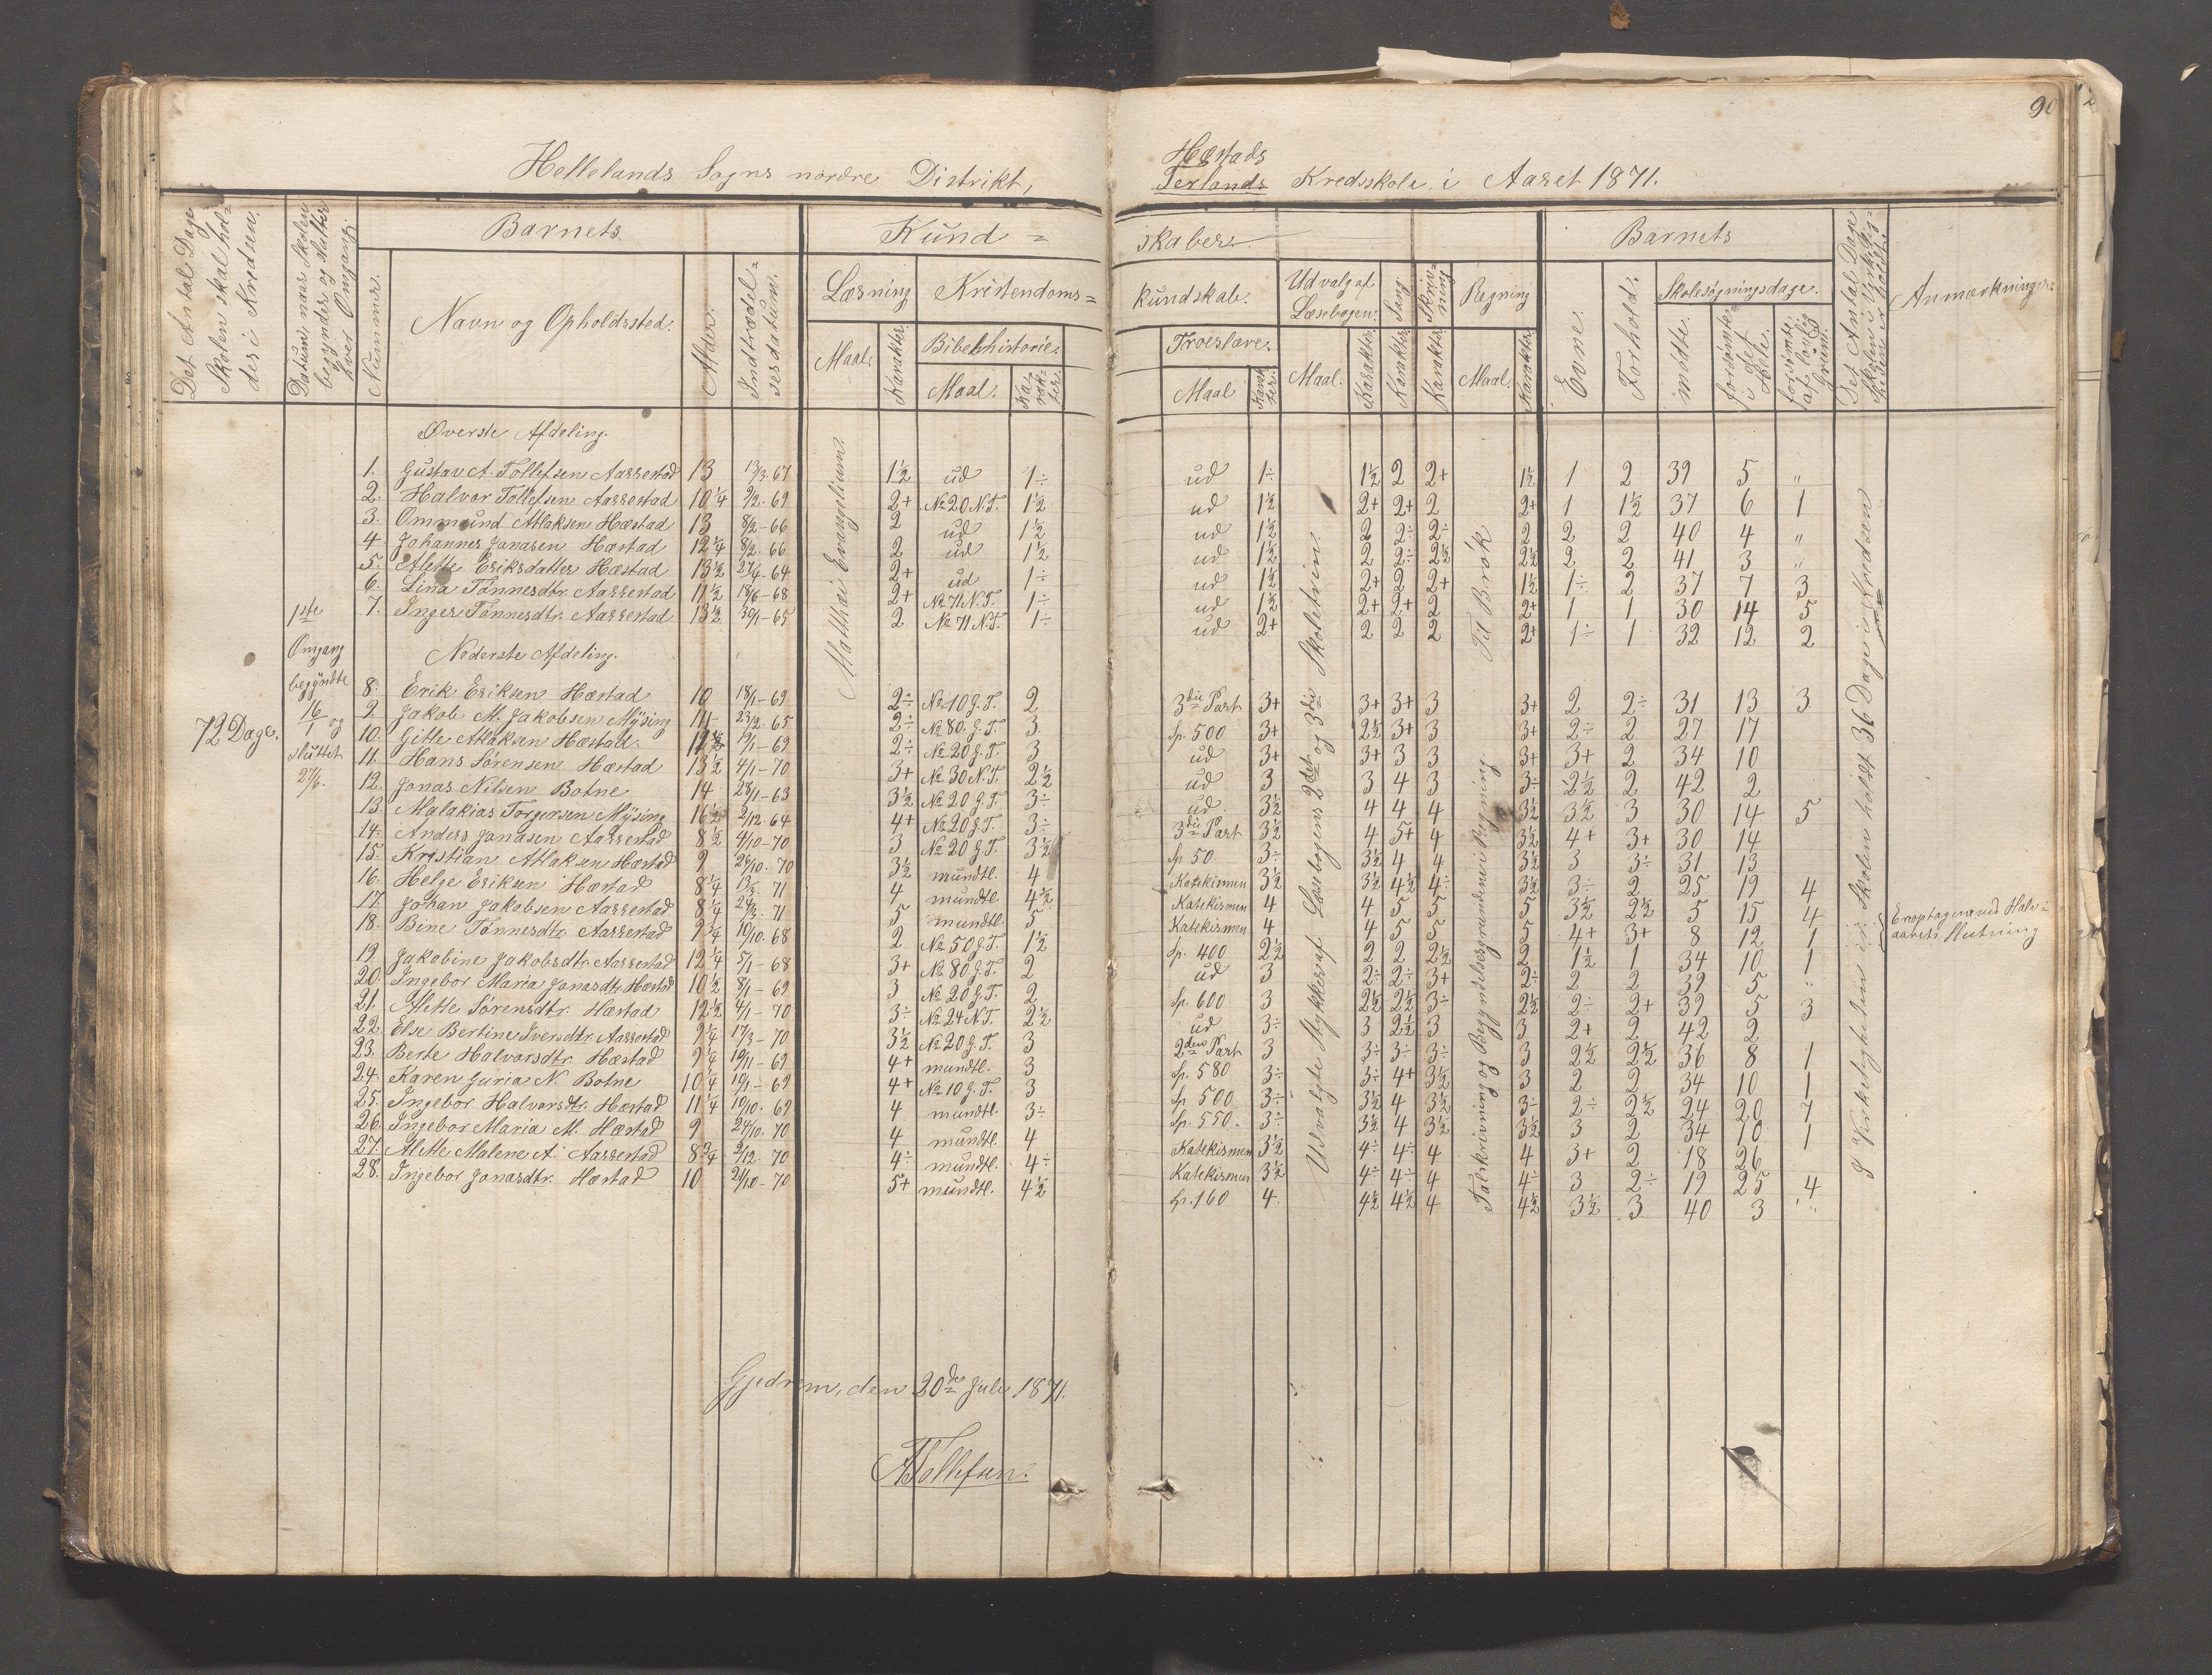 90
Hellelands Sogns nordre Distrikt,
Hæstads
Terlands Kredsskole i Aaret 1871.
Det Antal Dage Skolen skal holdes i Kredsen.
Datum, naar Skolen begynder og slutter hver Omgang.
Nummer.
Barnets
Navn og Opholdssted.
Alder.
Indtrædelsesdatum.
Kund=
skaber.
Læsning
Maal.
Karakter.
Kristendoms=
kundskab.
Bibelhistorie.
Maal.
Karakter.
Troeslære.
Maal
Karakter.
Udvalg af Læsebogen.
Maal.
Karakter.
Sang
Karakter.
Skrivning
Karakter.
Regning
Maal.
Karakter.
Barnets
Evne.
Forhold.
Skolesøgningsdage.
mødte.
forsømte i det Hele.
forsømte af lovlig Grund.
Det Antal Dage Skolen i Virkeligheden er holdt.
Anmærkninger.
72 Dage.
1ste
Omgang
begyndte
16/1 og
sluttet
27/6.
Matthæi Evangelium.
Udvalgte Stykker af Læsebogens 2det og 3die Skoletrin.
Til Brøk
Talskrivning og Begyndelsesgrundene i Regning.
I Virkeligheden er Skolen holdt 36 Dage i Kredsen
Øverste Afdeling.
1. Gustav A. Tollefsen Aarrestad 13 13/3 67 1½ ud 1÷ ud 1÷ 1½ 2 2+ 1½ 1 2 39 5 "
2. Halvor Tollefsen Aarrestad 10¼ 9/2 69 2+ No 20 N.T. 1½ ud 1½ 2+ 2+ 2 2+ 1 1½ 37 6 1
3. Ommund Atlaksen Hæstad 13 8/2 - 66 2 ud 1½ ud 1½ 2 2÷ 2÷ 2 2 2 40 4 "
4. Johannes Jonasen Hæstad 12¼ 8/2 66 2 ud 1½ ud 1½ 2 2÷ 2½ 2½ 2 2 41 3 "
5. Alette Eriksdatter Hæstad 13½ 27/4 - 64 2+ ud 1÷ ud 1½ 2+ 2 2+ 1½ 1÷ 2 37 7 3
6. Lina Tønnesdtr. Aarrestad 11½ 18/6 - 68 2+ No 71 N.T. 1÷ ud 1½ 2+ 2+ 2 2+ 1 1 30 14 5
7. Inger Tønnesdtr. Aarrestad 13½ 30/1 - 65 2 No 71 N.T. 1÷ ud 2+ 2 2 2 2+ 1÷ 1 32 12 2
Nederste Afdeling.
8. Erik Eriksen Hæstad 10 18/1 - 69 2÷ No 10 G.T. 2 3die Part 3+ 3+ 3+ 3 3+ 2 2÷ 31 13 3
9. Jakob M. Jakobsen Mysing 14 23/2 - 65 2÷ No 80 G.T. 3 Sp. 500 3+ 2½ 3+ 3 3+ 2÷ 2 27 17
10. Gitle Atlaksen Hæstad 9/1 - 69 2÷ No 20 G.T. 3 ud 3+ 3+ 3 3 3+ 3+ 2 34 10
11. Hans Sørensen Hæstad 13½ 4/1 - 70 3+ No 30 N.T. 2½ ud 3 3 4 3 3÷ 2½ 2 42 2
12. Jonas Nilsen Botne 14 28/1 - 63 3½ No 20 G.T. 3÷ ud 3½ 4 4 4 3½ 3½ 3 30 14 5
13. Malakias Torgersen Mysing 16½ 2/12 64 4+ No 20 G.T. 3÷ 3die Part 3½ 4 5+ 4 3½ 4+ 3+ 30 14
14. Anders Jonasen Aarrestad 8½ 4/10 - 70 3 No 20 G.T. 3½ Sp 50 3÷ 3½ 4 4 3½ 3 3÷ 31 13
15. Kristian Atlaksen Hæstad 9 24/10 - 70 3½ mundtl. 4 Katekismen 3½ 3½ 4½ 4÷ 3½ 3÷ 2 25 19 4
16. Helge Eriksen Hæstad 8¼ 13/3 71 4 mundtl 4½ Katekismen 4 4 5 5 5 3½ 2½ 5 15 4 Er optaget ved Halv=
17. Johan Jakobsen Aarrestad 8¼ 24/3 71 5 mundtl. 5 Katekismen 4 4 5 5 5 4+ 3+ 8 12 1 aarets Slutning
18. Bine Tønnesdtr. Aarrestad 9¾ 10/10 68 2 No 50 G.T. 1½ Sp. 400 2½ 2 2 2½ 2 1½ 1 34 10 1
19. Jakobine Jakobsdtr. Aarrestad 12¼ 5/1 - 68 3+ No 80 G.T. 2 ud 3 2÷ 2÷ 3+ 2÷ 2 2 39 5 "
20. Ingebor Maria Jonasdtr. Hæstad 10½ 8/1 - 69 3 No 20 G.T. 2 Sp. 600 3 2½ 2½ 3÷ 2½ 2÷ 2+ 39 5 3
21. Mette Sørensdtr. Hæstad 12½ 4/1 - 70 3÷ No 24 N.T. 2½ ud 3÷ 3 2½ 3 3 2+ 2 42 2
22. Else Bertine Iversdtr. Aarrestad 9¼ 17/3 - 70 3½ No 20 G.T. 3 2den Part 3 3÷ 3÷ 3÷ 3 2½ 2½ 36 8 1
23. Berte Halvorsdtr. Hæstad 9¼ 19/11 - 69 4+ mundtl. 3 Sp. 580 3÷ 3÷ 4+ 3½ 3 2 2 34 10 1
24. Karen Juria N. Botne 10¼ 19/1 - 69 4+ No 10 G.T. 3 Sp 500 3÷ 3½ 4 3½ 3÷ 2÷ 2½ 24 20 7
25. Ingebor Halvorsdtr. Hæstad 11¼ 19/10 69 4 mundtl. 3÷ Sp. 550. 3÷ 3½ 4 3½ 3½ 3 2 34 10 1
26. Ingebor Maria M. Hæstad 9 24/10 70 4 mundtl. 4 Katekismen 3½ 4÷ 4÷ 4 4 3+ 2 18 26
27. Mette Malene A. Aarrestad 8¾ 2/12 70 4÷ mundtl. 4÷ Katekismen 3½ 4÷ 4÷ 4 4÷ 3 2÷ 19 25 4
28. Ingebor Jonasdtr. Hæstad 10 24/10 - 70 5+ mundtl. 4½ Sp. 160 4. 4½ 4½ 4 4½ 3½ 3 40 3 "
Gjedrem, den 20de Juli 1871.
ATollefsen.